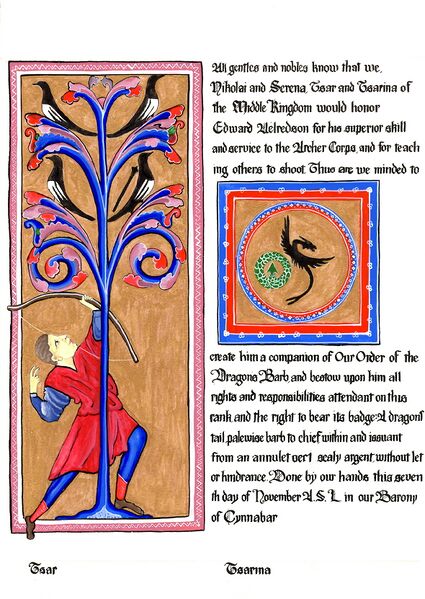 All gentles and nobles know that we,
Nikolai and Serena, Tsar and Tsarina of
the Middle Kingdom would honor
Edward Aelredson for his superior skill
and service to the Archer Corps, and for teach
ing others to shoot. Thus are we minded to
create him a companion of Our Order of the
Dragons Barb, and bestow upon him all
rights and responsibilities attendant on this
rank and the right to bear its badge: A dragons
tail palewise barb to chief within and issuant
from an annulet vert scaly argent, without let
or hindrance. Done by our hands this seven
th day of November A.S. L in our Barony
of Cynnabar
Tsar
Tsarina